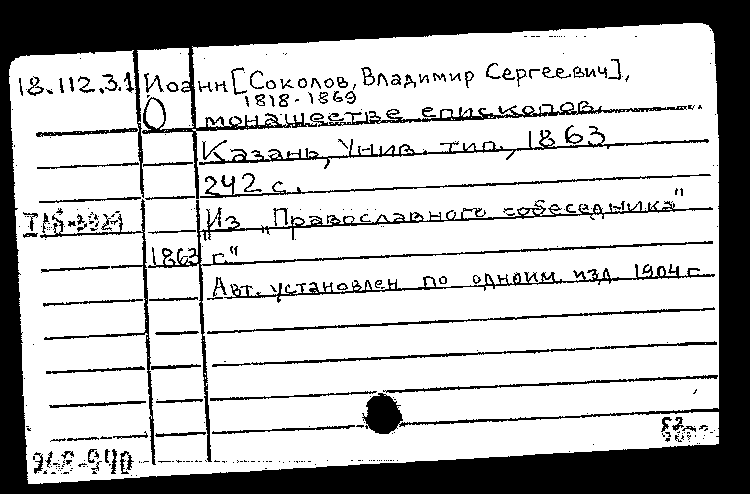 18.112.3.1 Иоанн [Соколов, Владимир Сергеевич],
1818-1869
О монашестве епископов.
Казань, Унив. тип., 1863
242 с.
"Из "Православного собеседника"
1863 г."
Авт. установлен по одноим. изд. 1904 г.
268-940